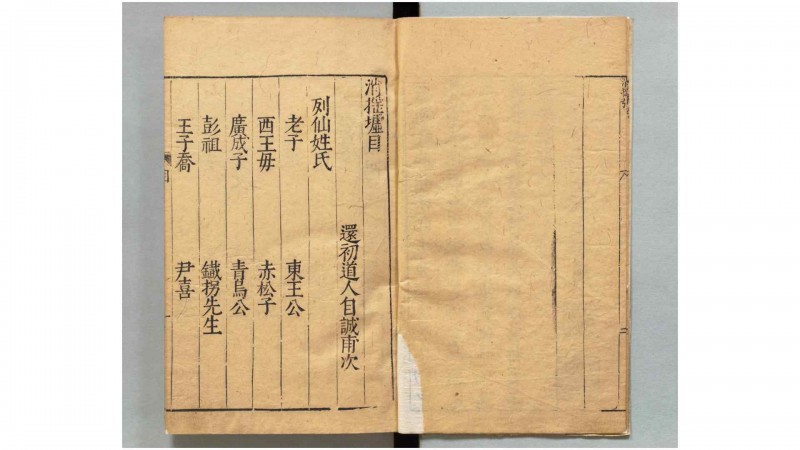 消搖墟目
還初道人自誠甫次
列仙姓氏
老子　東王公
西王毋　赤松子
廣成子　青烏公
彭祖　鐵拐先生
王子喬　尹喜